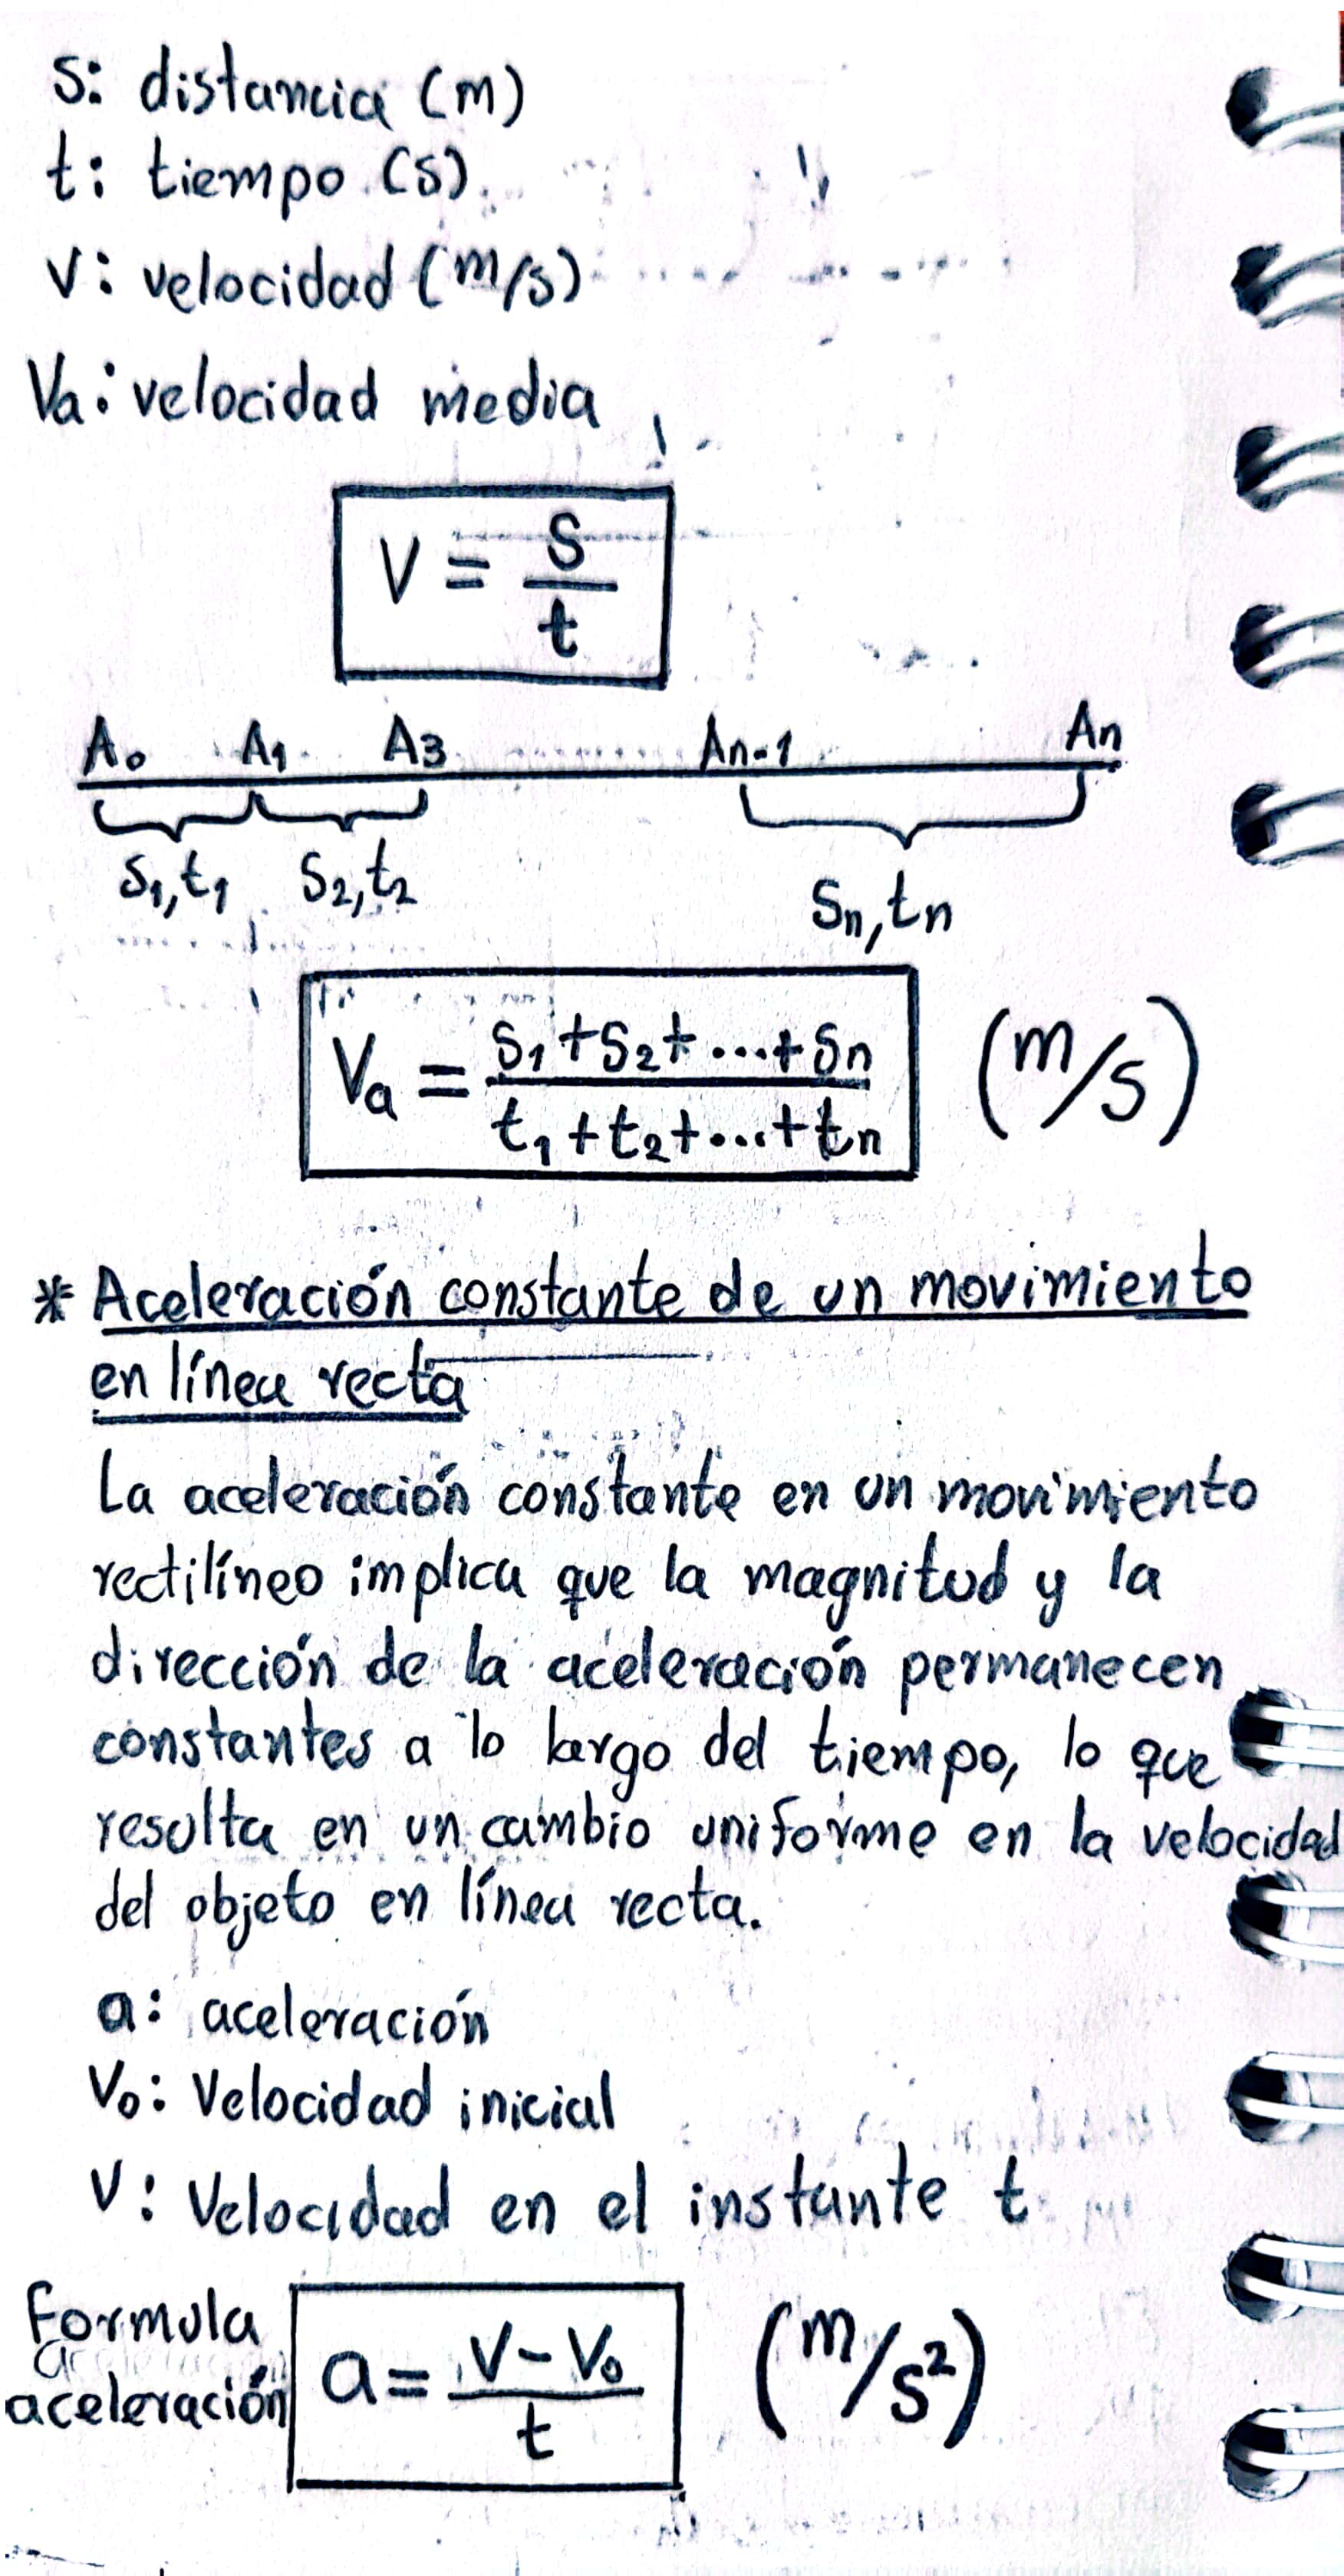 s: distancia (m)
t: tiempo (s)
V: velocidad (m/s)
Va: velocidad media
V = s/t
A₀ A₁ A₃ Aₙ₋₁ Aₙ
s₁,t₁ s₂,t₂ sₙ,tₙ
Vₐ = (s₁+s₂+...+sₙ)/(t₁+t₂+...+tₙ) (m/s)
* Aceleración constante de un movimiento
en línea recta
La aceleración constante en un movimiento
rectilíneo implica que la magnitud y la
dirección de la aceleración permanecen
constantes a lo largo del tiempo, lo que
resulta en un cambio uniforme en la velocidad
del objeto en línea recta.
a: aceleración
V₀: Velocidad inicial
V: Velocidad en el instante t
Formula
aceleración a = (V - V₀)/t (m/s²)